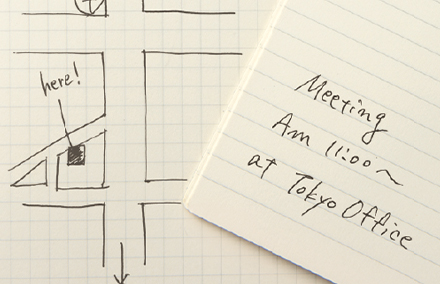 here!
Meeting
Am 11:00~
at Tokyo Office